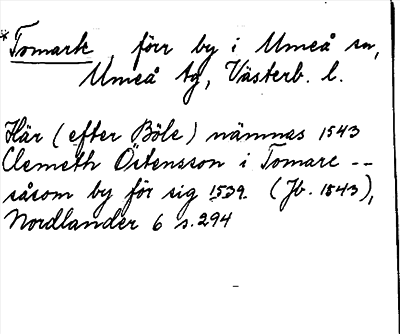 *Tomark förr by i Umeå sn,
Umeå tg, Västerb. l.
Här (efter Böle) nämnes 1543
Clemeth Östensson i Tomarc --
såsom by för sig 1539. (Jb. 1543),
Nordlander 6 s. 294